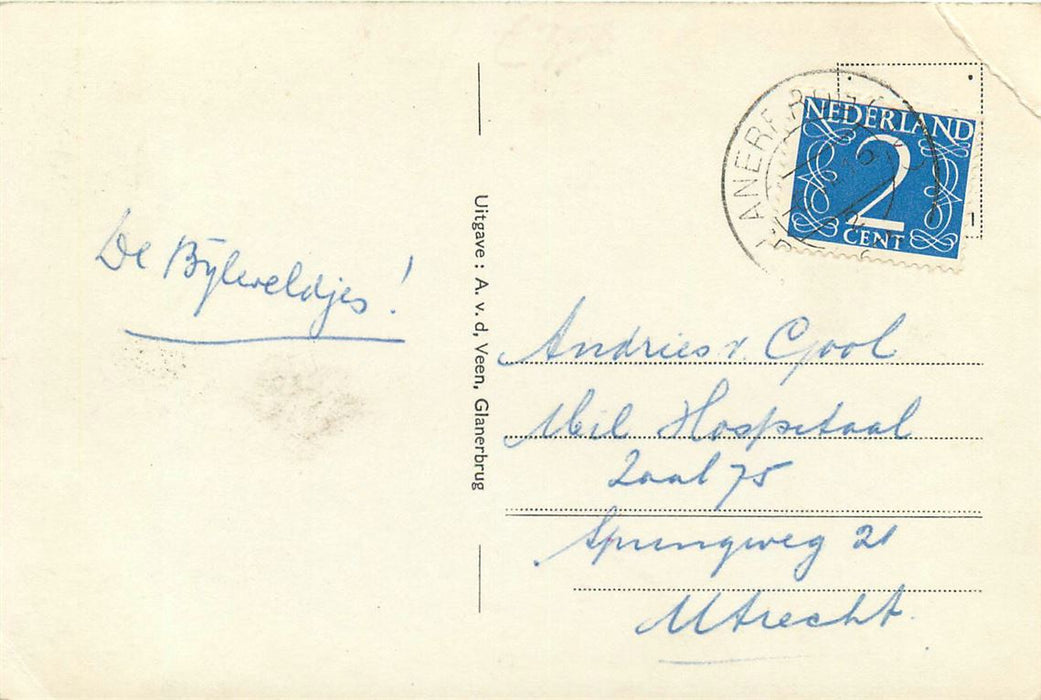 NEDERLAND
2
CENT
De Bijleveldjes!
Uitgave : A. v. d, Veen, Glanerbrug
Andries v Gool
Mil Hospitaal
Zaal 75
Springweg 21
Utrecht.